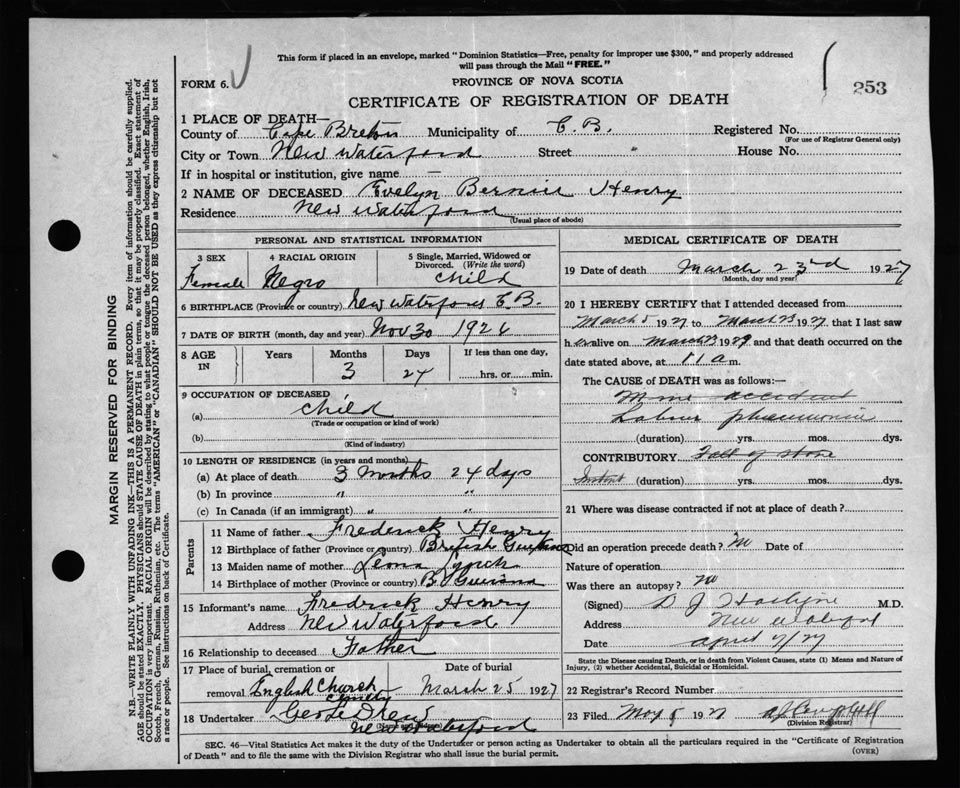 This form if placed in an envelope, marked "Dominion Statistics—Free, penalty for improper use $300," and properly addressed
will pass through the Mail "FREE."
FORM 6.
PROVINCE OF NOVA SCOTIA
253
CERTIFICATE OF REGISTRATION OF DEATH
1 PLACE OF DEATH—
County of Cape Breton Municipality of C. B. Registered No.
(For use of Registrar General only)
City or Town New Waterford Street " House No.
If in hospital or institution, give name —
2 NAME OF DECEASED Evelyn Henry
Residence New Waterford
(Usual place of abode)
PERSONAL AND STATISTICAL INFORMATION
3 SEX 4 RACIAL ORIGIN 5 Single, Married, Widowed or Divorced. (Write the word)
Female Negro child
6 BIRTHPLACE (Province or country) New Waterford C. B.
7 DATE OF BIRTH (month, day and year) Nov 30 1926
8 AGE IN Years Months Days If less than one day,
3 24 hrs. or min.
9 OCCUPATION OF DECEASED
(a) child
(Trade or occupation or kind of work)
(b)
(Kind of industry)
10 LENGTH OF RESIDENCE (in years and months)
(a) At place of death 3 Months 24 days
(b) In province " "
(c) In Canada (if an immigrant) " "
Parents
11 Name of father Frederick Henry
12 Birthplace of father (Province or country) British Guiana
13 Maiden name of mother Lynch
14 Birthplace of mother (Province or country) B. Guiana
15 Informant's name Fredrick Henry
Address New Waterford
16 Relationship to deceased Father
17 Place of burial, cremation or Date of burial
removal English Church March 25 1927
18 Undertaker
(Name and address)
New Waterford
MEDICAL CERTIFICATE OF DEATH
19 Date of death March 23rd 1927
(Month, day and year)
20 I HEREBY CERTIFY that I attended deceased from
March 5 1927 to March 23 1927, that I last saw
h er alive on March 23 19 and that death occurred on the
date stated above, at 11 a m.
The CAUSE of DEATH was as follows:—
Mine accident
pneumonia
(duration) yrs. mos. dys.
CONTRIBUTORY Fall of stone
(duration) yrs. mos. dys.
21 Where was disease contracted if not at place of death?
Did an operation precede death? no Date of
Nature of operation
Was there an autopsy? no
(Signed) D J M.D.
Address New Waterford
Date April 7/27
State the Disease causing Death, or in death from Violent Causes, state (1) Means and Nature of
Injury, (2) whether Accidental, Suicidal or Homicidal.
22 Registrar's Record Number
23 Filed May 8 1927
(Division Registrar)
SEC. 46—Vital Statistics Act makes it the duty of the Undertaker or person acting as Undertaker to obtain all the particulars required in the "Certificate of Registration
of Death" and to file the same with the Division Registrar who shall issue the burial permit.
(OVER)
MARGIN RESERVED FOR BINDING
N.B.—WRITE PLAINLY WITH UNFADING INK—THIS IS A PERMANENT RECORD. Every item of information should be carefully supplied.
AGE should be stated EXACTLY. PHYSICIANS should STATE CAUSE OF DEATH in plain terms, so that it may be properly classified. Exact statement of
OCCUPATION is very important. RACIAL ORIGIN will be described by stating to what people or tongue the deceased person belonged, whether English, Irish,
Scotch, French, German, Russian, Ruthenian, etc. The terms "AMERICAN" or "CANADIAN" SHOULD NOT BE USED as they express citizenship but not
a race or people. See instructions on back of Certificate.